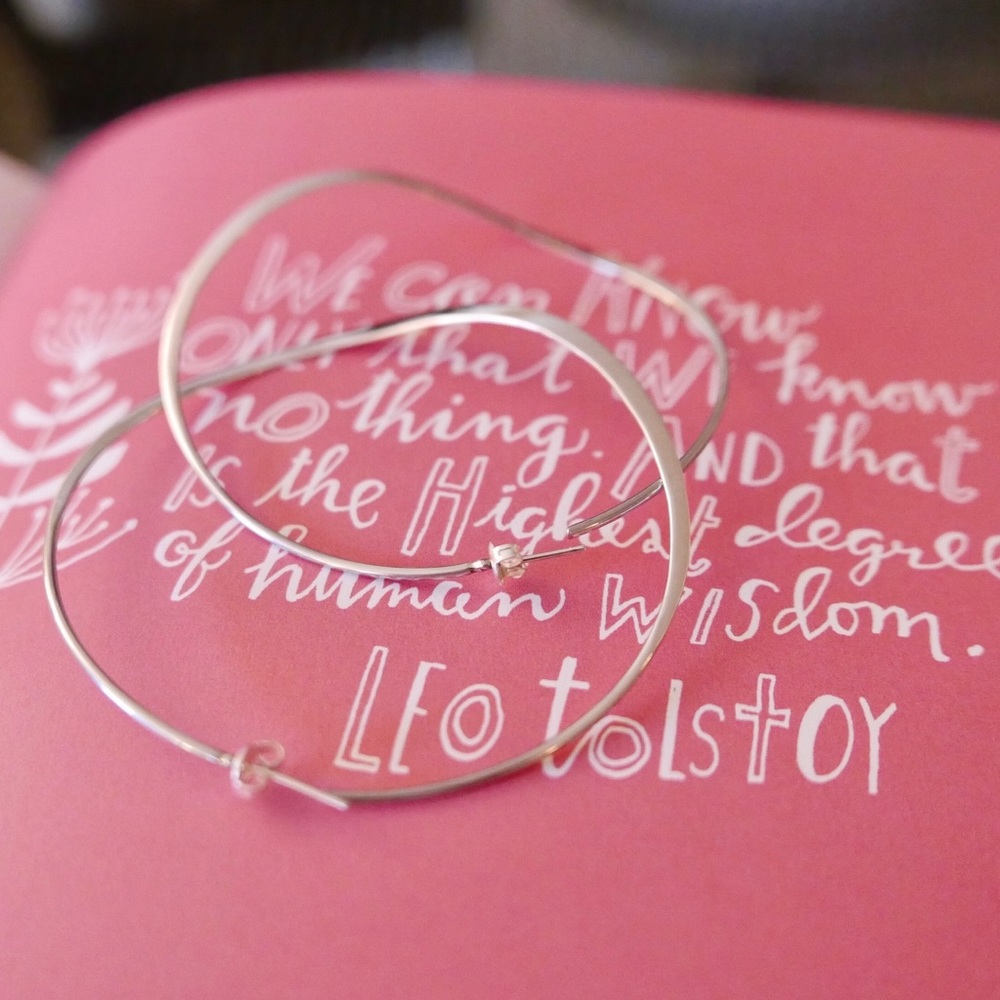 WE can Know
ONLY that WE know
nothing. AND that
IS the Highest degree
of human WISdom.
LEO tolstOY